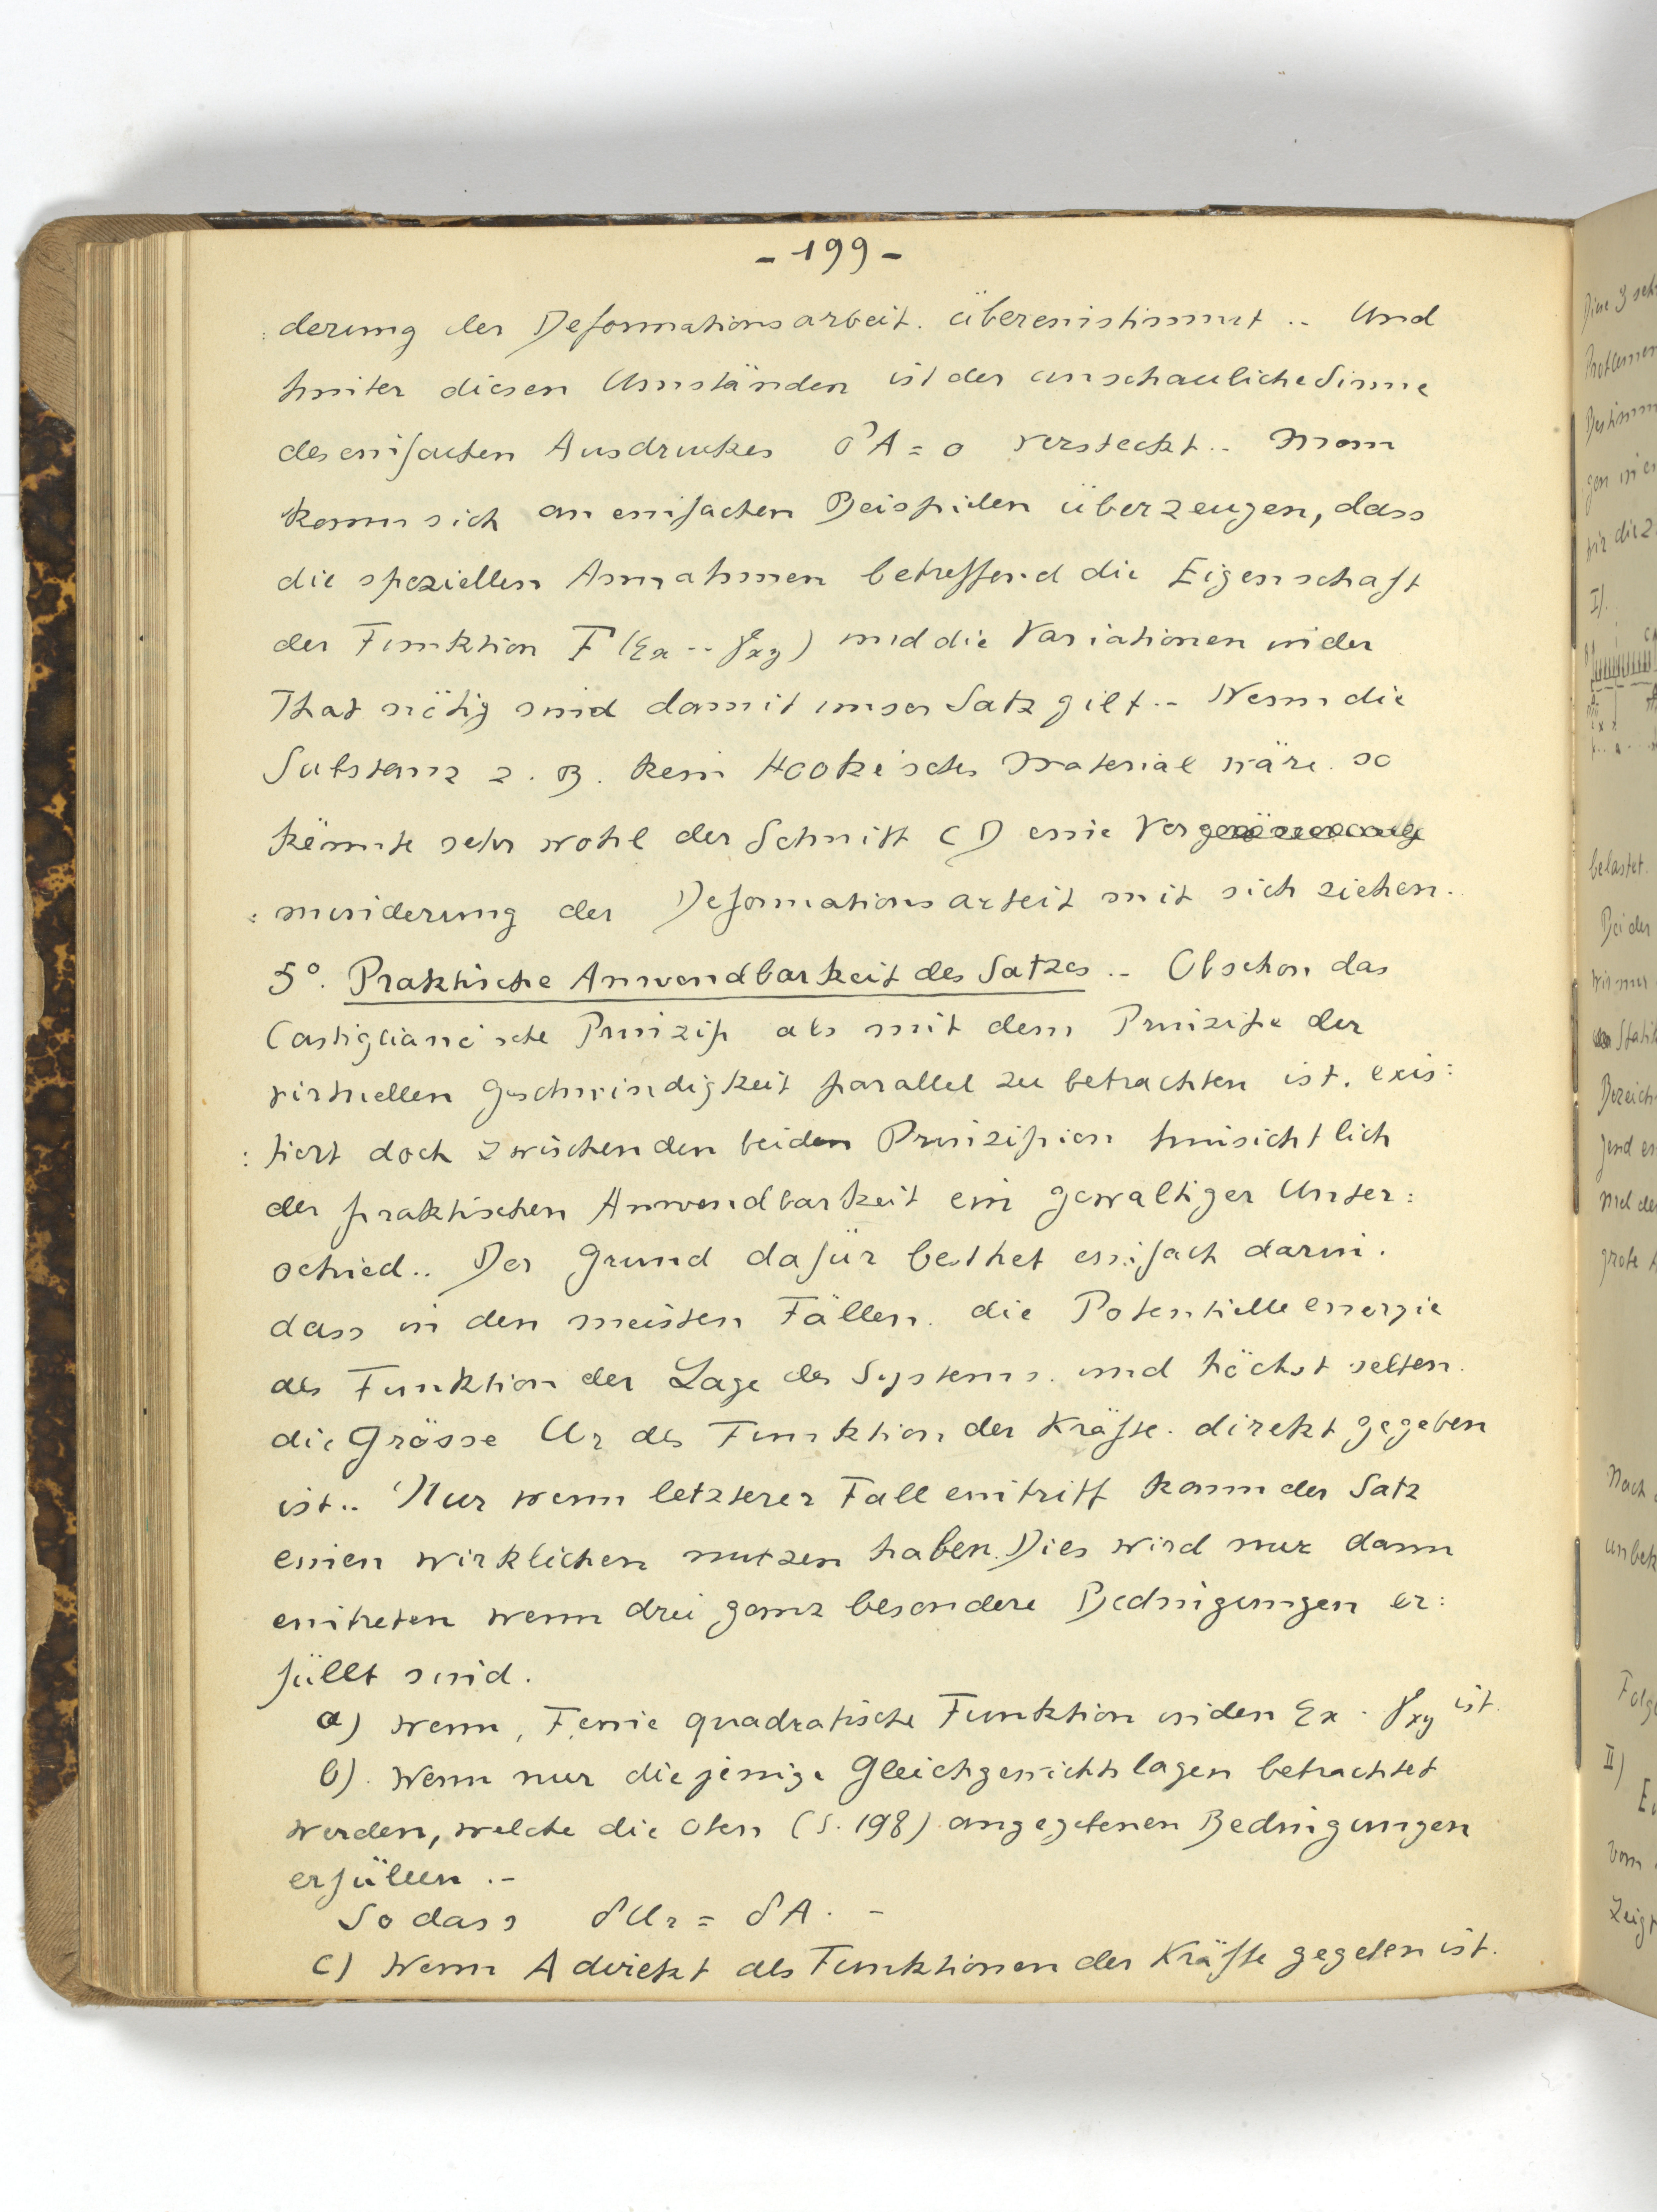 - 199 -
: derung der Deformationsarbeit. übereinstimmt .. Und
hinter diesen Umständen ist der anschauliche Sinne
des einfachen Ausdruckes δA = o versteckt .. Man
kann sich an einfachen Beispielen überzeugen, dass
die speziellen Annahmen betreffend die Eigenschaft
der Funktion F (εx -- γxy) und die Variationen in der
That nötig sind damit unser Satz gilt .- Wenn die
Substanz z. B. kein Hooke'sches Material wäre. so
könnte sehr wohl der Schnitt CD eine Ver
: minderung der Deformationsarbeit mit sich ziehen.
5°. Praktische Anwendbarkeit des Satzes .- Obschon das
Castigliano'sche Prinzip als mit dem Prinzipe der
virtuellen Geschwindigkeit parallel zu betrachten ist. exis:
: tiert doch zwischen den beiden Prinzipien hinsichtlich
der praktischen Anwendbarkeit ein gewaltiger Unter:
schied .. Der Grund dafür besthet einfach darin.
dass in den meisten Fällen. die Potentielle energie
als Funktion der Lage des Systems. und höchst selten.
die Grösse Ur als Funktion der Kräfte. direkt gegeben
ist .. Nur wenn letzterer Fall eintritt kann der Satz
einen wirklichen nutzen haben. Dies wird nur dann
eintreten wenn drei ganz besondere Bedingungen er:
füllt sind.
a) Wenn, F, eine quadratische Funktion in den εx . γxy ist.
b). Wenn nur diejenige Gleichgewichtslagen betrachtet
werden, welche die oben (S. 198) angegebenen Bedingungen
erfüllen .-
So dass δUr = δA . -
c) Wenn A direkt als Funktionen der Kräfte gegeben ist.